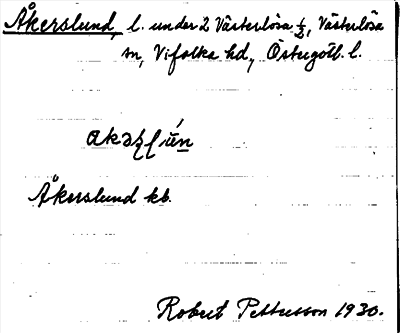 Åkerslund, l. under 2 Västerlösa ½, Västerlösa
sn, Vifolka hd, Östergötl. l.
Åkerslund kb.
Robert Pettersson 1930.